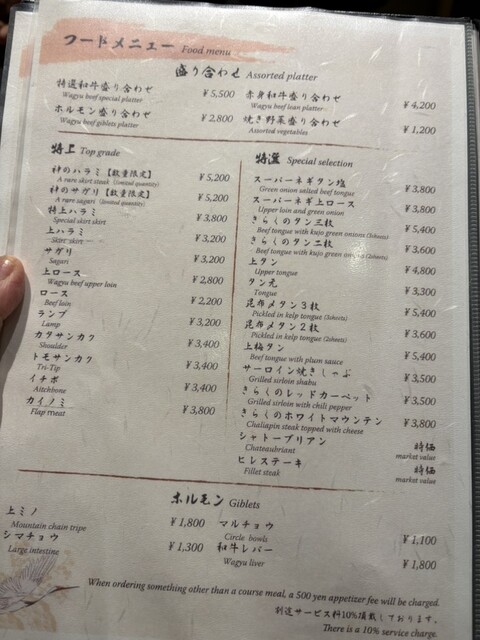 フードメニュー Food menu
盛り合わせ Assorted platter
特選和牛盛り合わせ ¥5,500
Wagyu beef special platter
ホルモン盛り合わせ ¥2,800
Wagyu beef giblets platter
赤身和牛盛り合わせ ¥4,200
Wagyu beef lean platter
焼き野菜盛り合わせ ¥1,200
Assorted vegetables
特上 Top grade
神のハラミ【数量限定】 ¥5,200
A rare skirt steak (limited quantity)
神のサガリ【数量限定】 ¥5,200
A rare sagari (limited quantity)
特上ハラミ ¥3,800
Special skirt skirt
上ハラミ ¥3,200
Skirt skirt
サガリ ¥3,200
Sagari
上ロース ¥2,800
Wagyu beef upper loin
ロース ¥2,200
Beef loin
ランプ ¥3,200
Lamp
カタサンカク ¥3,400
Shoulder
トモサンカク ¥3,400
Tri-Tip
イチボ ¥3,400
Aitchbone
カイノミ ¥3,800
Flap meat
特選 Special selection
スーパーネギタン塩 ¥3,800
Green onion salted beef tongue
スーパーネギ上ロース ¥3,800
Upper loin and green onion
きらくのタン三枚 ¥5,400
Beef tongue with kujo green onions (3sheets)
きらくのタン二枚 ¥3,600
Beef tongue with kujo green onions (2sheets)
上タン ¥4,800
Upper tongue
タン元 ¥3,300
Tongue
昆布〆タン3枚 ¥5,400
Pickled in kelp tongue (3sheets)
昆布〆タン2枚 ¥3,600
Pickled in kelp tongue (2sheets)
上梅タン ¥5,400
Beef tongue with plum sauce
サーロイン焼きしゃぶ ¥3,500
Grilled sirloin shabu
きらくのレッドカーペット ¥3,500
Grilled sirloin with chili pepper
きらくのホワイトマウンテン ¥3,800
Chaliapin steak topped with cheese
シャトーブリアン 時価
Chateaubriant market value
ヒレステーキ 時価
Fillet steak market value
ホルモン Giblets
上ミノ ¥1,800
Mountain chain tripe
シマチョウ ¥1,300
Large intestine
マルチョウ ¥1,100
Circle bowls
和牛レバー ¥1,800
Wagyu liver
When ordering something other than a course meal, a 500 yen appetizer fee will be charged.
別途サービス料10%頂戴しております。
There is a 10% service charge.